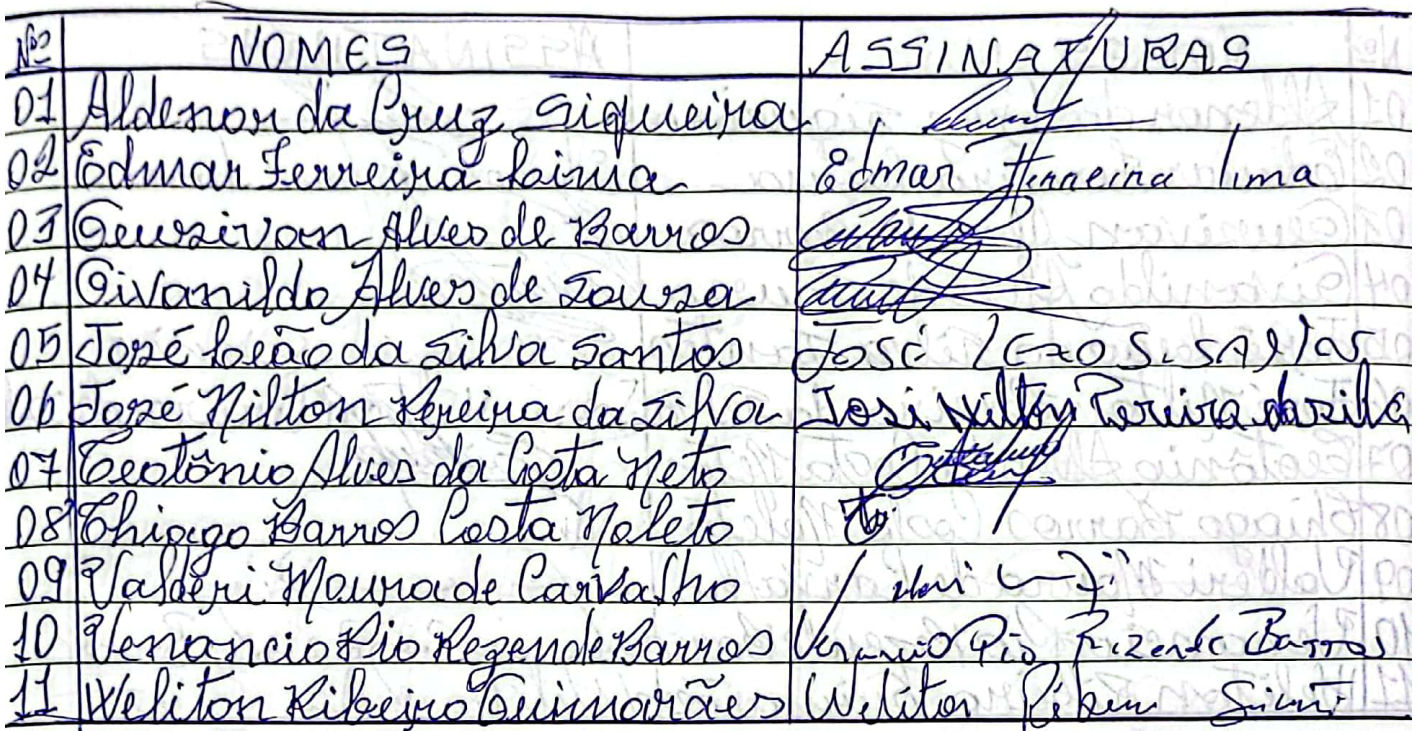 Nºs NOMES ASSINATURAS
01 Aldenor da Cruz Siqueira
02 Edmar Ferreira Lima Edmar Ferreira lima
03 Geuzivan Alves de Barros
04 Givanildo Alves de Souza
05 José Leão da Silva Santos José
06 José Nilton Pereira da Silva José Nilton Pereira da silva
07 Teotônio Alves da Costa Neto
08 Thiago Barros Costa Noleto
09 Valderi Moura de Carvalho
10 Venancio Pio Rezende Barros Venancio Pio Rezende Barros
11 Weliton Ribeiro Guimarães Weliton